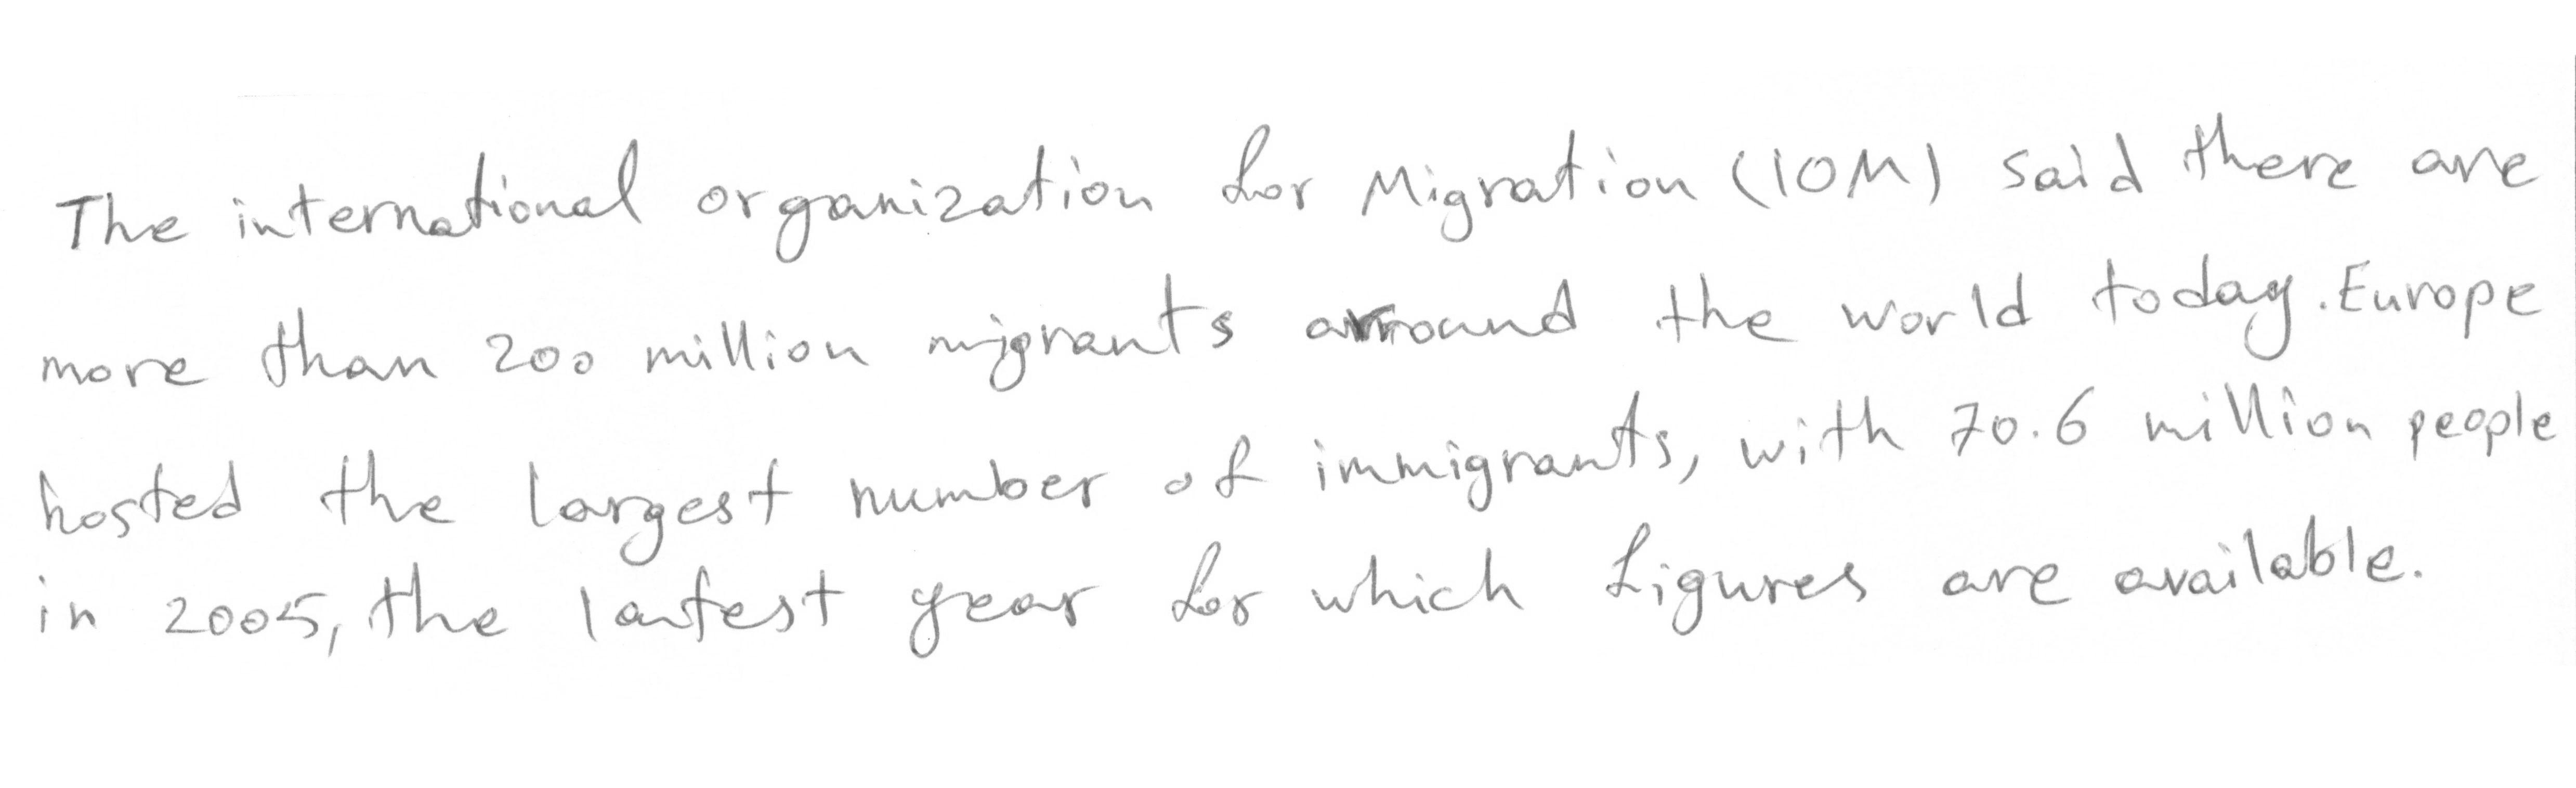 The international organization for Migration (IOM) said there are
more than 200 million migrants around the world today. Europe
hosted the largest number of immigrants, with 70.6 million people
in 2005, the latest year for which figures are available.